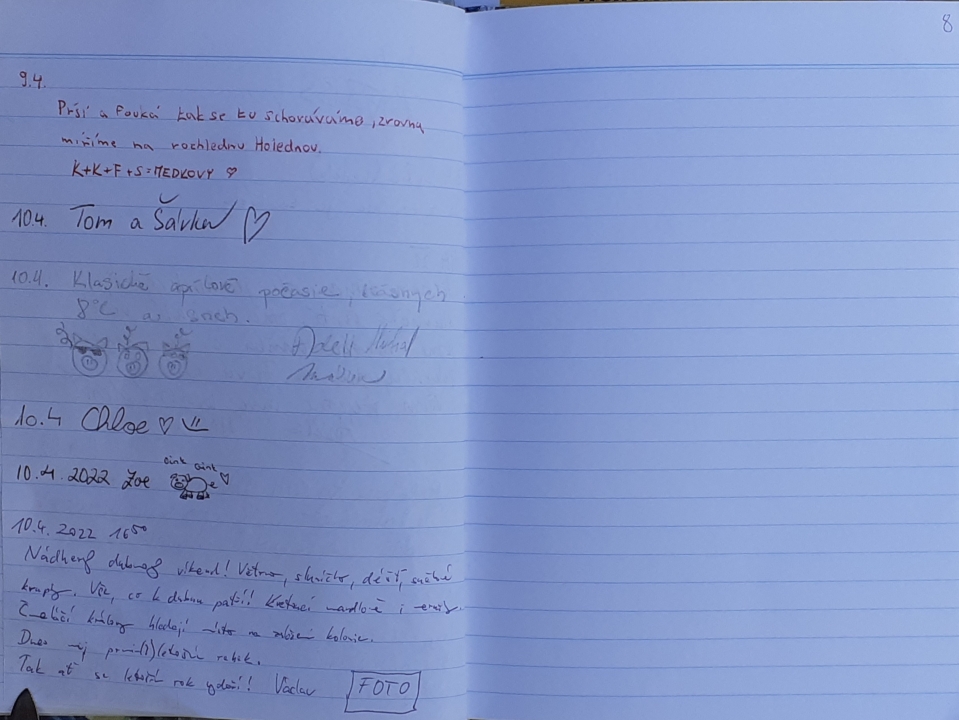 8
9.4.
Prší a fouká tak se tu schováváme, zrovna
míříme na rozhlednu Holednou.
K+K+F+S=MEDKOVY ♡
10.4. Tom a Šárka ♡
10.4. Klasické aprílové počasie, krásnych
8°C a sneh.
Adell
10.4 Chloe ♡
10.4.2022 Zoe oink oink ♡
10.4.2022 16⁵⁰
Nádherný dubnový víkend! Větrno, sluníčko, déšť, sněhové
kroupy. Vše, co k dubnu patří! Kvetoucí mandloně i
hledají místo na založení kolonie.
Dnes můj první(!) letošní
Tak ať se letošní rok vydaří! Václav
FOTO